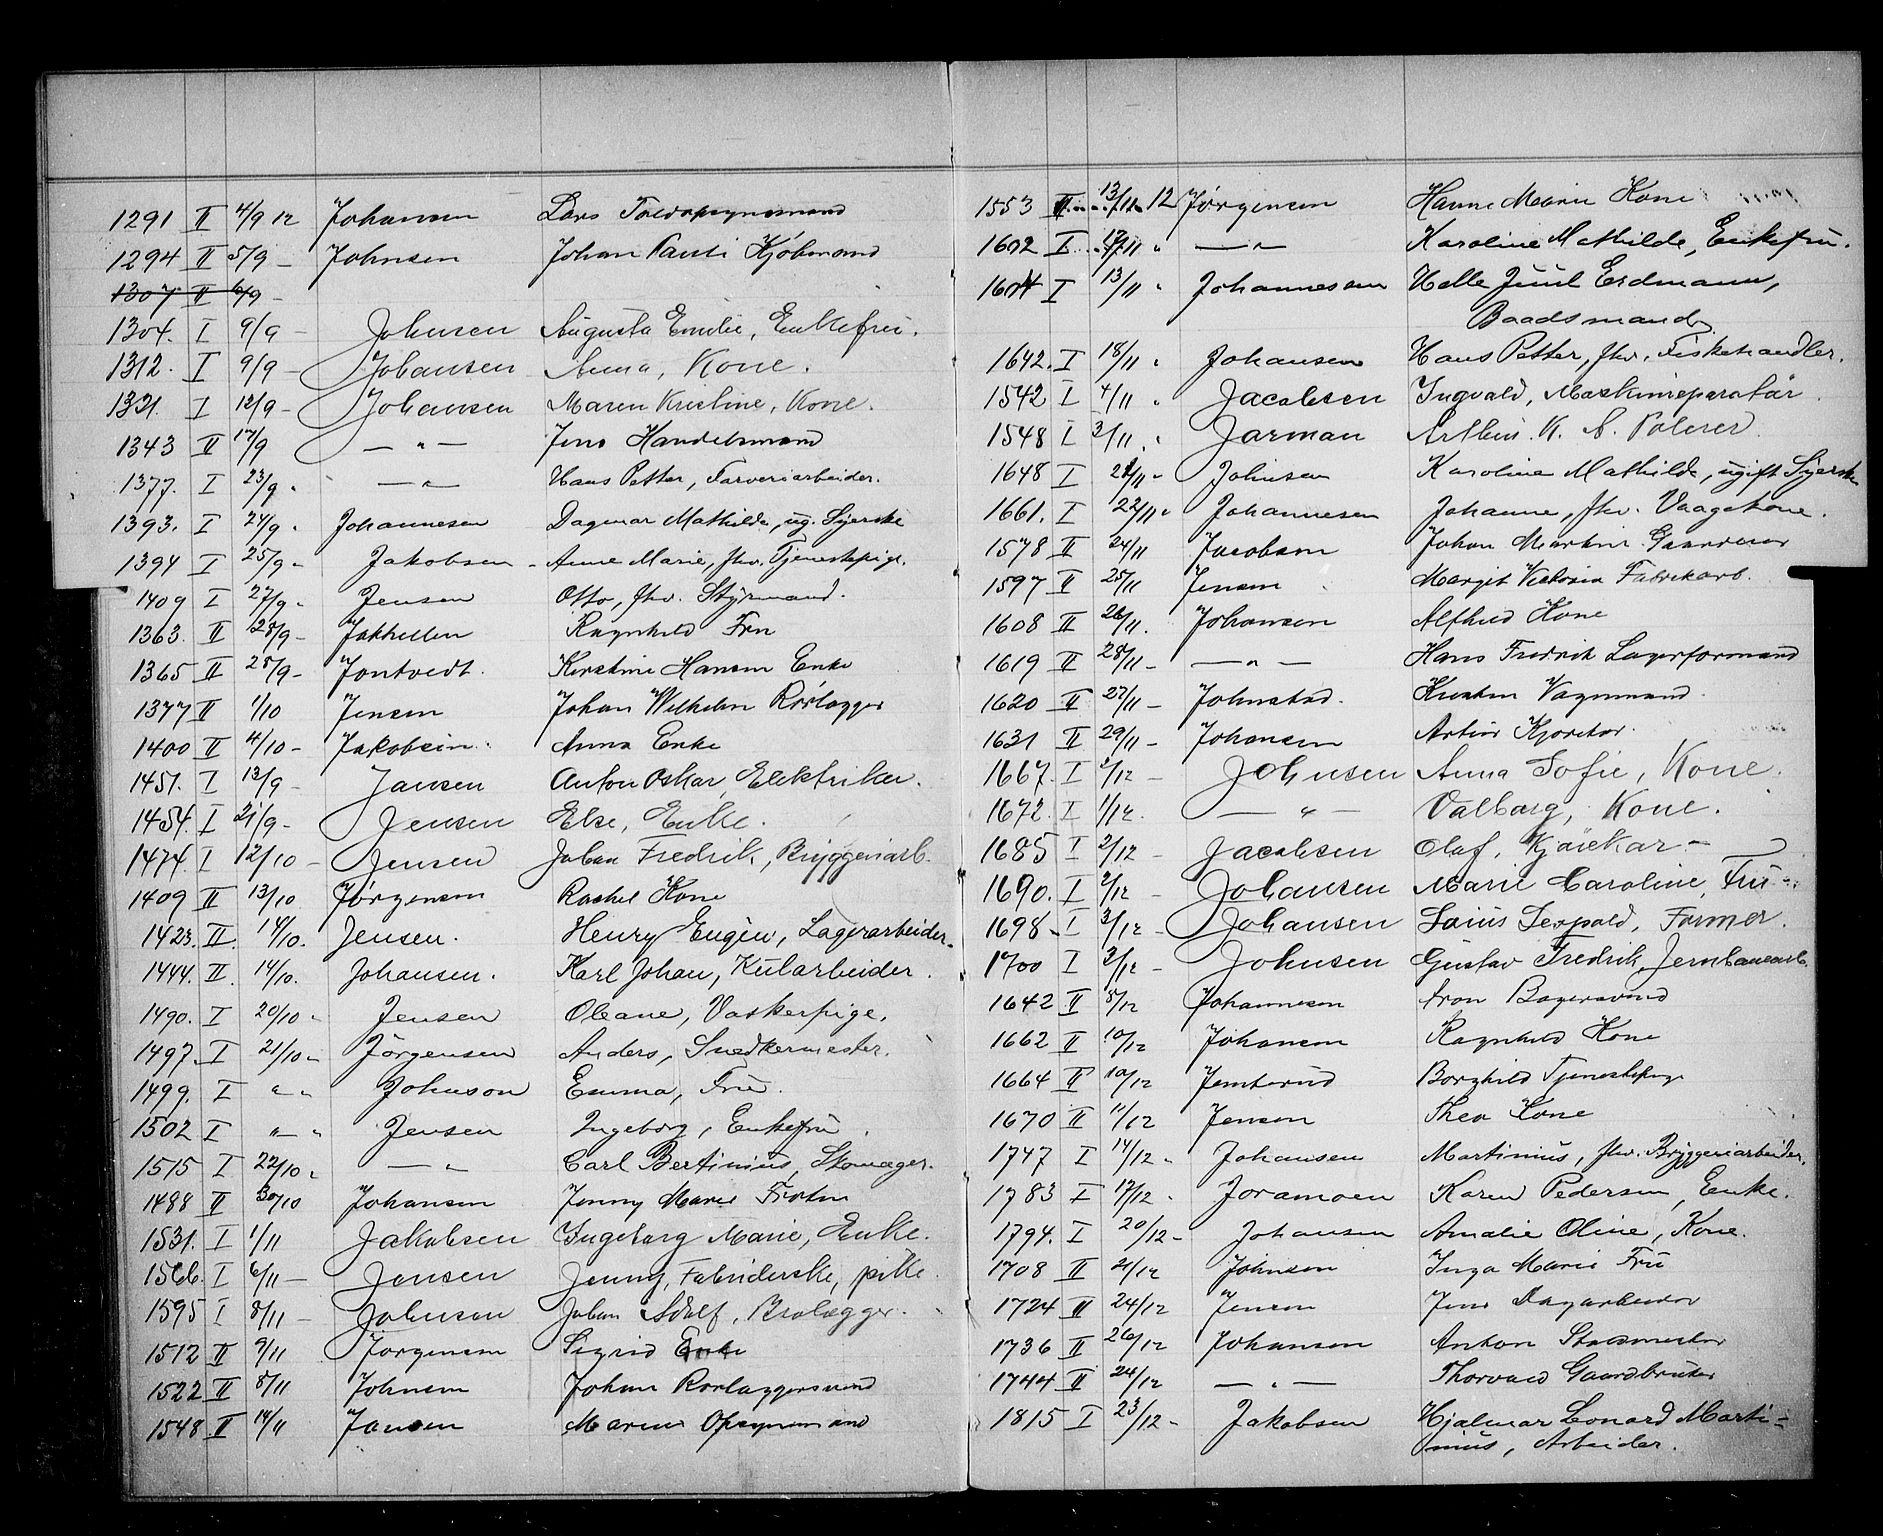 1291 II 4/9 12 Johansen Lars Toldopsynsmand
1294 II 5/9 – Johnsen Johan Pauli Kjøbmand
1307 II 6/9 –
1304. I 9/9 – Johnsen Augusta Emilie, Enkefru.
1312. I 9/9 – Johansen Anna, Kone.
1321. I 12/9 – Johansen Maren Kristine, Kone.
1343 II 17/9 — „ — Jens Handelsmand
1377. I 23/9 „ — „ — Hans Petter, Farveriarbeider.
1393. I 24/9 „ Johannesen Dagmar Mathilde, ug. Syerske
1394 I 25/9 „ Jakobsen – Anne Marie, fhv. Tjenestepige.
1409 I 27/9 „ Jensen Otto, fhv. Styrmand.
1363. II 28/9 – Jakhellen Ragnhild Fru
1365 II 28/9 – Jontvedt. Kirstine Hansen Enke
1377 II 1/10 Jensen Johan Wilhelm Rørlægger
1400 II 4/10 – Jakobsen. Anna Enke
1451. I 13/9 – Jansen Anton Oskar, Elektriker.
1454. I 21/9 – Jensen Else, Enke.
1474. I 12/10 – Jensen Johan Fredrik, Bryggeriarb.
1409 II 13/10 Jørgensen Rachel Kone
1423. II. 14/10. Jensen. Henry Eugen, Lagerarbeider.
1444. II. 14/10. Johansen. Karl Johan, Kularbeider.
1490. I 20/10 „ Jensen Oleane, Vaskerpige.
1497. I 21/10 „ Jörgensen Anders, Snedkermester.
1499. I „ „ Johnson Emma, Frue.
1502 I „ „ Jensen Ingeborg, Enkefru.
1515 I 22/10 „ — „ Carl Bertinius, Skomager.
1488 II 30/10 Johansen Jenny Marie Frøken
1531. I 1/11 Jakobsen Ingeborg Marie, Enke.
1566. I 6/11 – Jensen Jenny, Fabriderske, pike.
1595 I 8/11 – Johnson Johan Adolf, Brolægger.
1512 II 9/11 Jørgensen Sigrid Enke
1522 II 8/11 Johnsen Johan Rørlæggersvend
1548 II 14/11 Jansen Marius Opsynsmand
1553 II 13/11 12 Jørgensen Hanne Marie Kone
1602 I 17/11 „ — „ — Karoline Mathilde, Enkefru.
1604 I 13/11 „ Johannessen Halle Juul Erdmann,
Baadsmand
1642. I 18/11 „ Johansen Hans Petter, fhv. Fiskehandler.
1542 I 4/11 „ Jacobsen Ingvald, Maskinreparatör.
1548 I 3/11 „ Jarman Arthur. K. A. Polerer.
1648 I 21/11 „ Johnsen Karoline Mathilde, ugift Syerske
1661. I 22/11 „ Johannesen Johanne, fhv. Vaagekone.
1578 II 24/11 Jacobsen Johan Martin Gaardeier
1597 II 25/11 Jensen Margit Viktoria Fabrikarb.
1608 II 26/11. Johansen Alfhild Kone
1619 II 28/11 – — „ — Hans Fredrik Lagerformand
1620 II 27/11 – Johnstad. Kristen Vognmand.
1631 II 29/11 – Johansen Artur Kjøretør.
1667. I 2/12 – Johnsen Anna Sofie, Kone.
1672. I 1/12. — „ — Valborg, Kone.
1685 I 2/12 – Jacobsen Olaf, Kjöiekar –
1690. I 2/12 – Johansen Marie Caroline, Fru
1698 – I 3/12 – Johansen Laius Leopold, Formér.
1700 I 3/12 – Johnsen Gustav Fredrik, Jernbanearb.
1642 II 8/12 Johannesen Aron Bagersvend
1662 II 10/12 Johansen Ragnhild Kone
1664 II 10/12 Jemterud Borghild Tjenestepige
1670 II 11/12 Jensen Thea Kone
1747 I 14/12 „ Johansen Martinius, fhv. Bryggeriarbeider.
1783 I 17/12 „ Joramoen Karen Pedersen, Enke.
1794. I 20/12 – Johansen Amalie Oline, Kone.
1708 II 21/12 Johnsen Inga Marie Fru
1724 II 24/12 Jensen Jens Dagarbeider
1736 II 26/12 Johansen Anton Stadsmester
1744 II 24/12 — „ — Thorvald Gaardbruker
1815 I 23/12 – Jakobsen Hjalmar Leonard Marti-
nius, Arbeider.